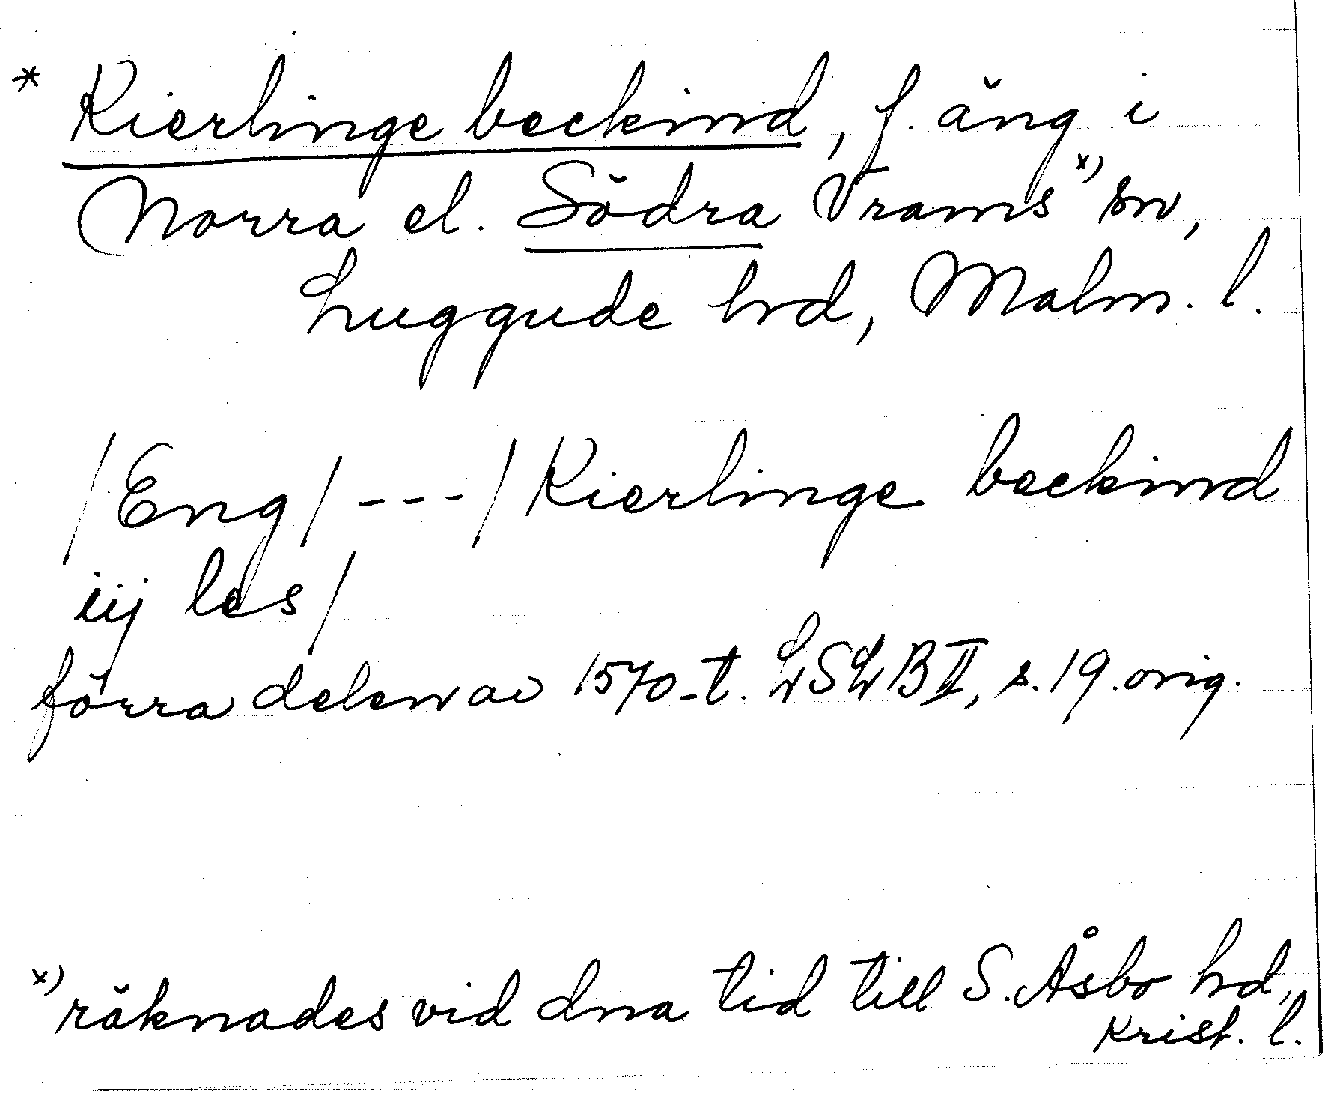 * Kierlinge beckind, f. äng i
Norra el. Södra Vrams *) sn,
Luggude hrd, Malm. l.
/Eng/ --- / Kierlinge beckind
iij les/
förra delen av 1570-t. LSLB II, s. 19. orig.
*) räknades vid dna tid till S. Åsbo hrd,
Krist. l.